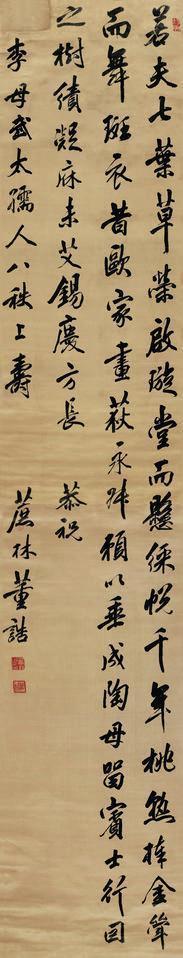 若夫七葉草榮啟璇堂而懸綵帨千年桃熟捧金斝
而舞斑衣昔歐家畫荻永叔賴以垂成陶母留賓士行因
之樹績凝庥未艾錫慶方長 恭祝
李母武太孺人八秩上壽 蔗林董誥